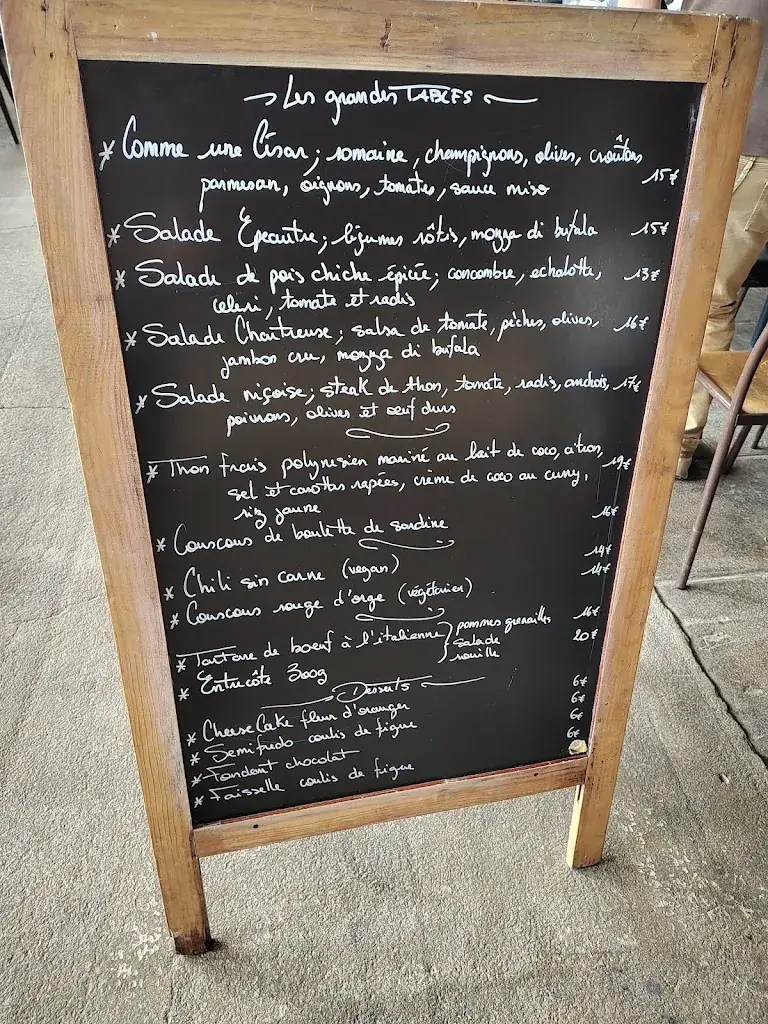 Les grandes TABLES
* Comme une César; romaine, champignons, olives, croûtons
parmesan, oignons, tomates, sauce miso 15€
* Salade Épeautre; légumes rôtis, mozza di bufala 15€
* Salade de pois chiche épicée; concombre, echalotte, 13€
celeri, tomate et radis
* Salade Chartreuse; salsa de tomate, pêches, olives, 16€
jambon cru, mozza di bufala
* Salade niçoise; steak de thon, tomate, radis, anchois, 17€
poivrons, olives et oeuf durs
* Thon frais polynesien mariné au lait de coco, citron, 19€
sel et carottes rapées, crème de coco au curry,
riz jaune
* Couscous de boulette de sardine 16€
* Chili sin carne (vegan) 14€
* Couscous rouge d'orge (végétarien) 14€
* Tartare de boeuf à l'italienne } pommes grenailles 16€
salade
* Entrecôte 300g 20€
Desserts
* CheeseCake fleur d'oranger 6€
* Semifredo coulis de figue 6€
* Fondant chocolat 6€
* Faisselle coulis de figue 6€